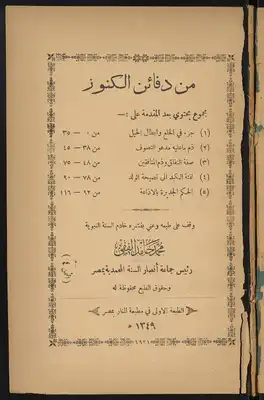 من دفائن الكنوز
مجموع يحتوي بعد المقدمة على :—
(١) جزء في الخلع وابطال الحيل من ٠ — ٣٥
(٢) ذم ما عليه مدعو التصوف من ٣٨ — ٤٥
(٣) صفة النفاق وذم المنافقين من ٤٨ — ٧٥
(٤) لفتة الكبد الى نصيحة الولد من ٧٨ — ٩٠
(٥) الحكم الجديرة بالاذاعة من ٩٢ — ١١٦
وقف على طبعه وعني بنشره خادم السنة النبوية
محمد حامد الفقي
رئيس جماعة أنصار السنة المحمدية بمصر
وحقوق الطبع محفوظة له
الطبعة الاولى في مطبعة المنار بمصر
١٣٤٩ ه